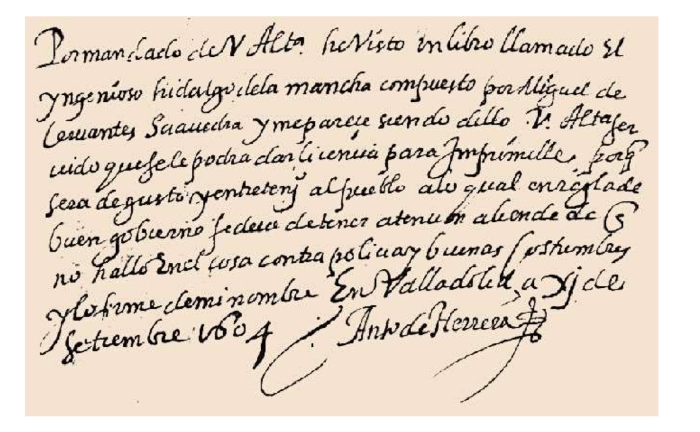 Por mandado de V Altª he Visto un libro llamado El
yngenioso hidalgo de la mancha compuesto por Miguel de
Cervantes Saavedra y me parece siendo dello V. Alta ser
uido que se le podra dar licencia para Imprimille, porq
sera de gusto y entretenjº al pueblo a lo qual en regla de
buen gobierno se deue de tener atencion aliende de q
no hallo En el cosa contra policia y buenas costumbres
y lo firme de mi nombre En Valladolid a xj de
Setiembre 1604
Antº de Herrera